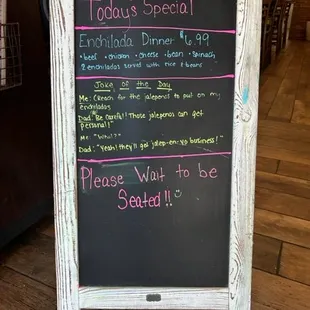 Today's Special
Enchilada Dinner $6.99
• beef • chicken • cheese • bean • spinach
2 enchiladas served with rice & beans
Joke of the Day
Me: (Reach for the jalepenos to put on my
enchiladas
Dad: Be careful!! Those jalepenos can get
personal!"
Me:
Dad: "Yeah! they'll get jalep-en-yo business!"
Please Wait to be
Seated!!